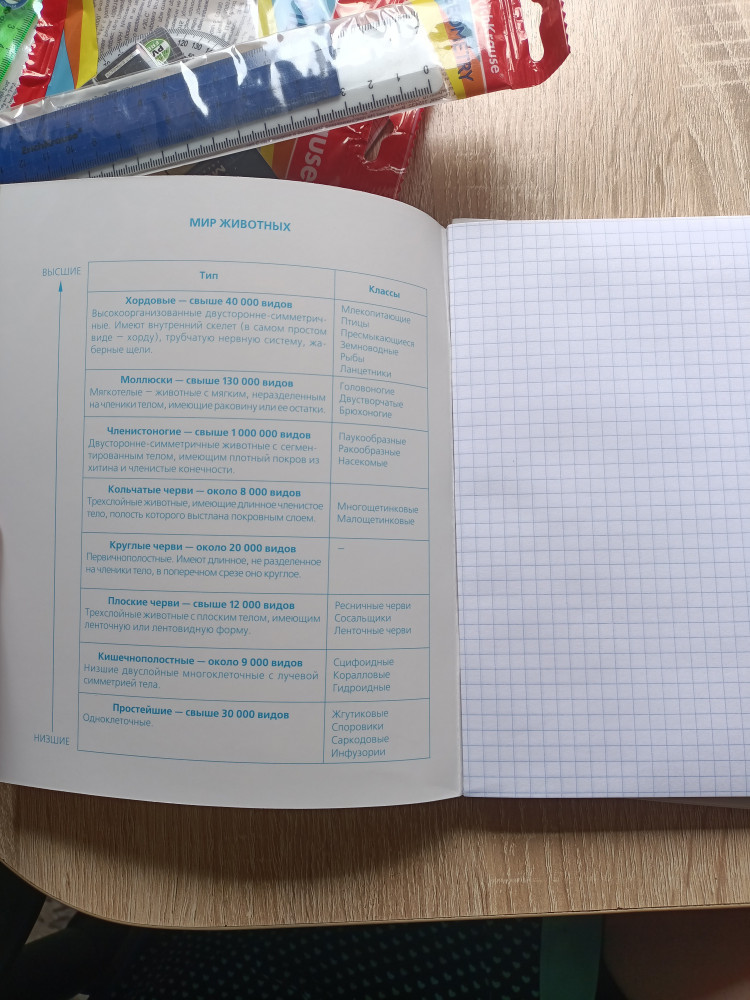 GEOMETRY
Krause
МИР ЖИВОТНЫХ
ВЫСШИЕ
Тип
Классы
Хордовые — свыше 40 000 видов
Высокоорганизованные двусторонне-симметрич-
ные. Имеют внутренний скелет (в самом простом
виде — хорду), трубчатую нервную систему, жа-
берные щели.
Млекопитающие
Птицы
Пресмыкающиеся
Земноводные
Рыбы
Ланцетники
Моллюски — свыше 130 000 видов
Мягкотелые — животные с мягким, неразделенным
на членики телом, имеющие раковину или ее остатки.
Головоногие
Двустворчатые
Брюхоногие
Членистоногие — свыше 1 000 000 видов
Двусторонне-симметричные животные с сегмен-
тированным телом, имеющим плотный покров из
хитина и членистые конечности.
Паукообразные
Ракообразные
Насекомые
Кольчатые черви — около 8 000 видов
Трехслойные животные, имеющие длинное членистое
тело, полость которого выстлана покровным слоем.
Многощетинковые
Малощетинковые
Круглые черви — около 20 000 видов
Первичнополостные. Имеют длинное, не разделенное
на членики тело, в поперечном срезе оно круглое.
—
Плоские черви — свыше 12 000 видов
Трехслойные животные с плоским телом, имеющим
ленточную или лентовидную форму.
Ресничные черви
Сосальщики
Ленточные черви
Кишечнополостные — около 9 000 видов
Низшие двуслойные многоклеточные с лучевой
симметрией тела.
Сцифоидные
Коралловые
Гидроидные
Простейшие — свыше 30 000 видов
Одноклеточные.
Жгутиковые
Споровики
Саркодовые
Инфузории
НИЗШИЕ